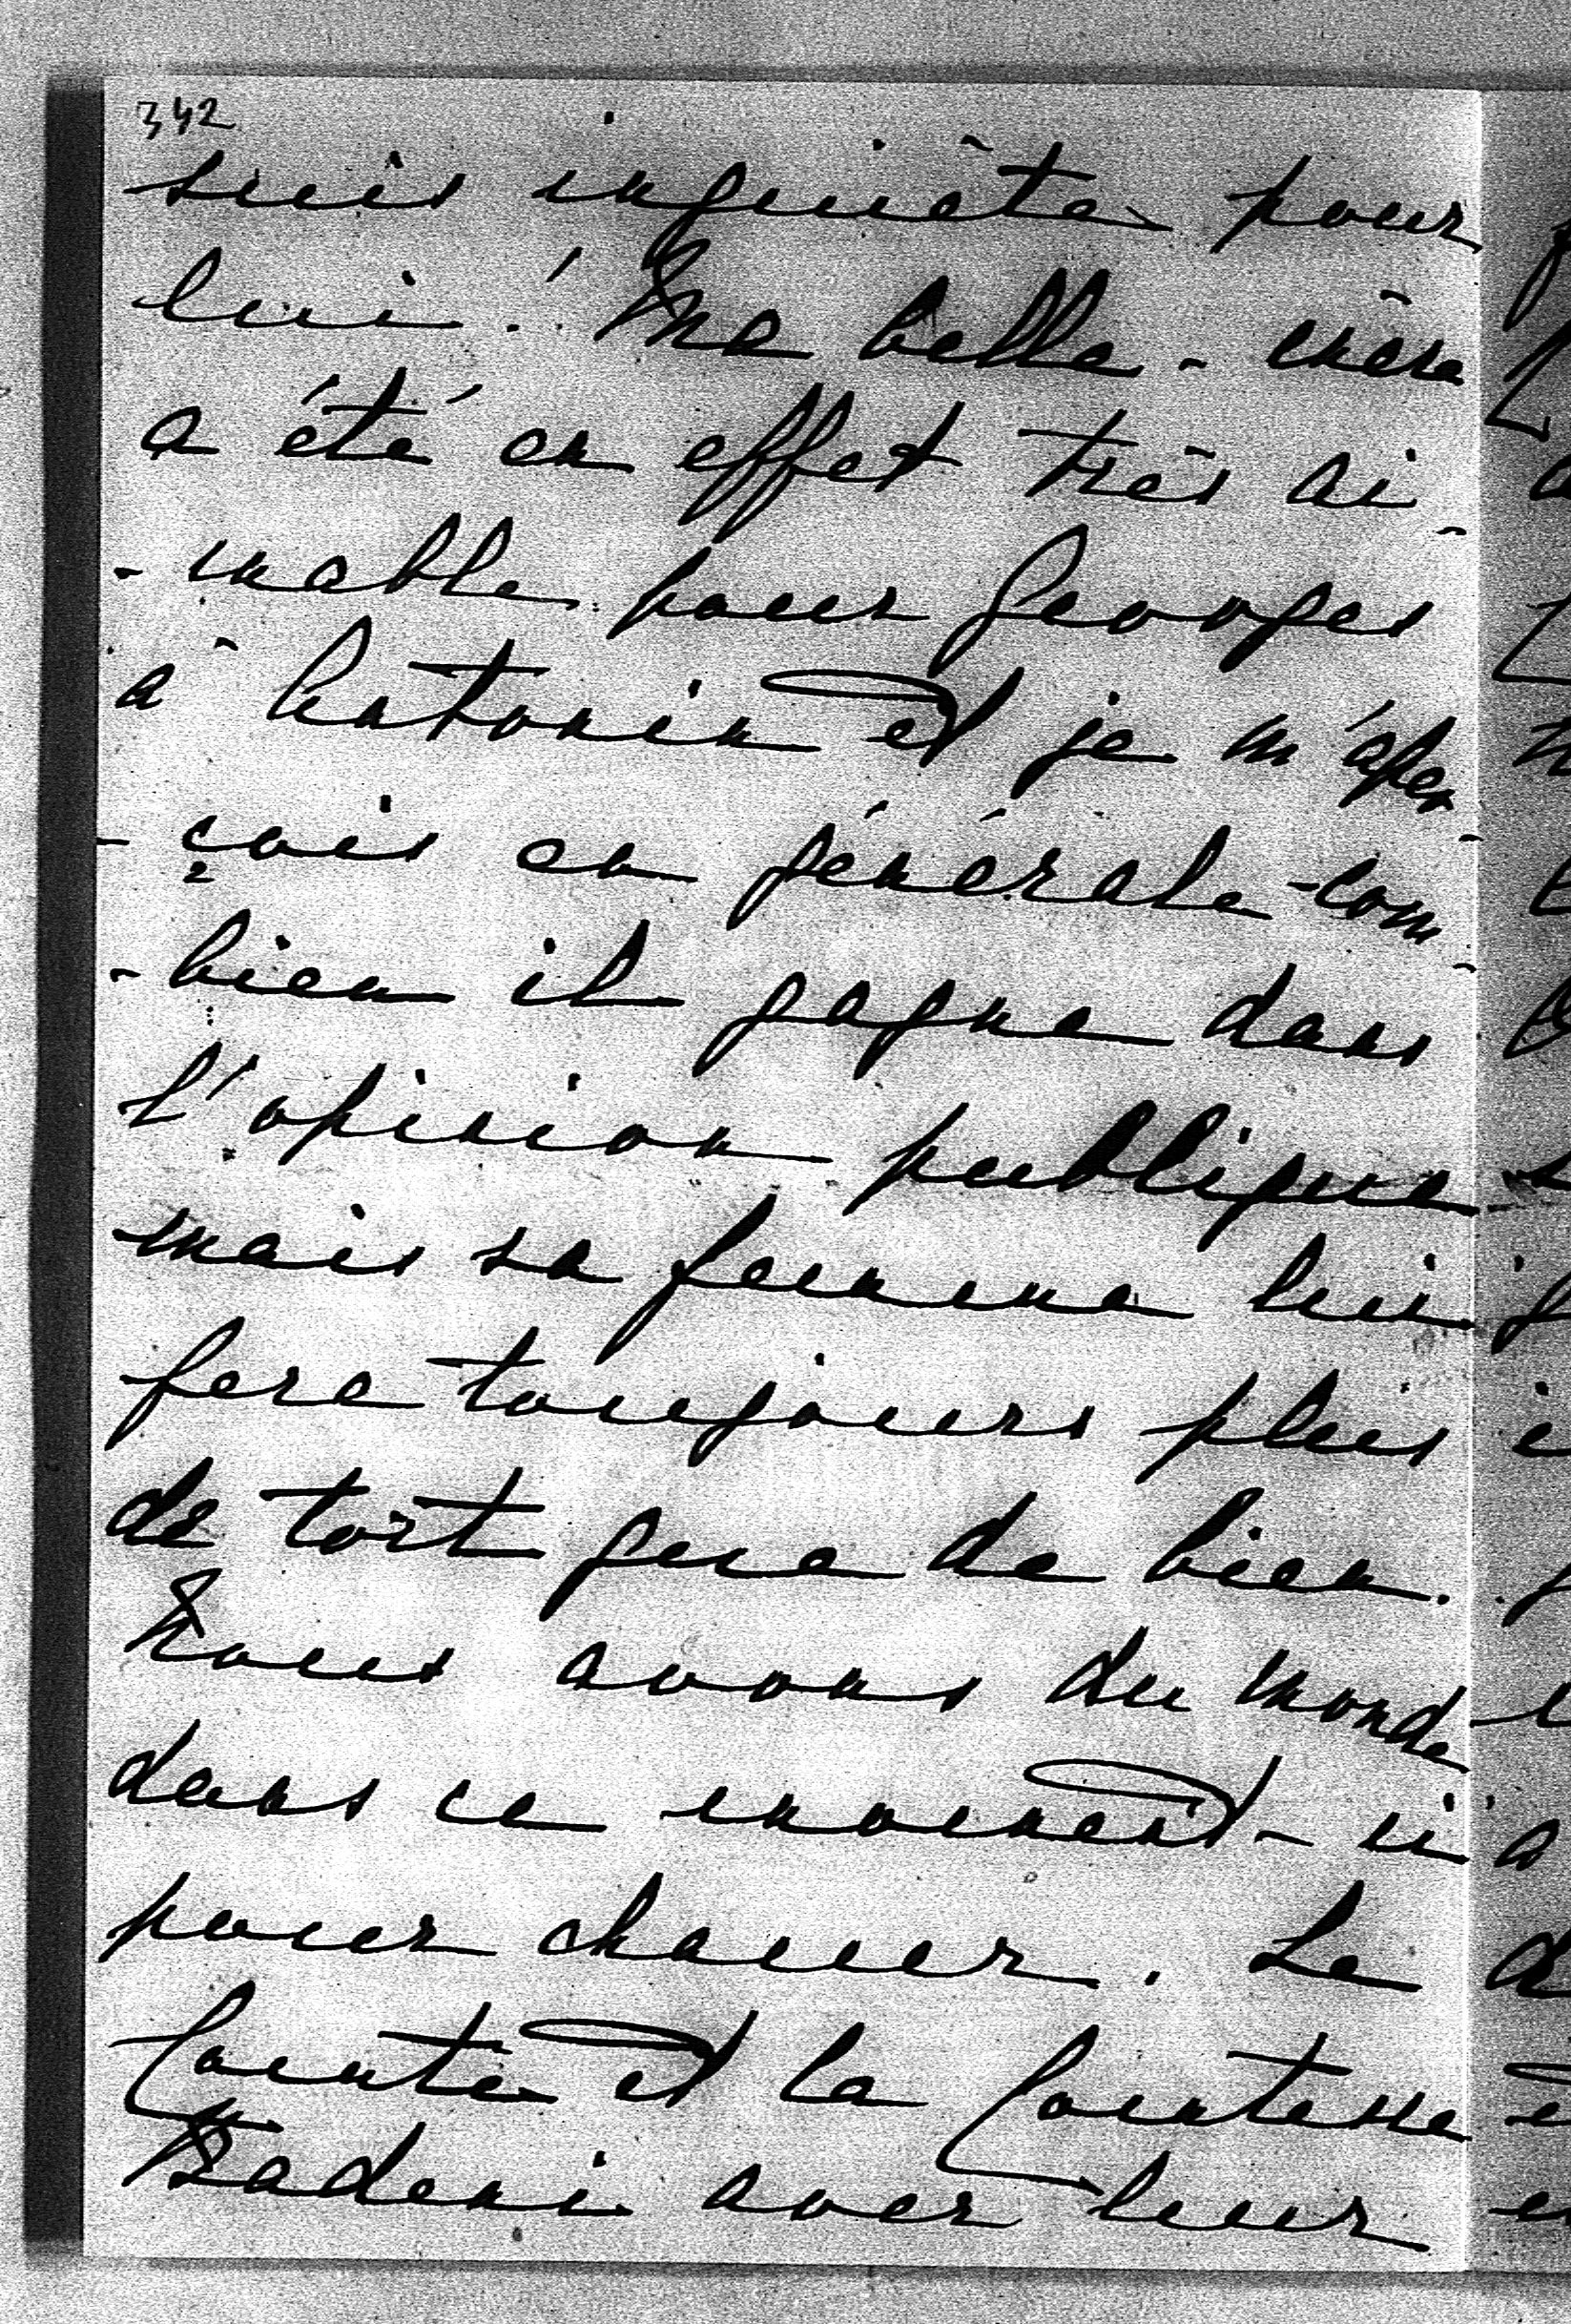 342
suis inquiète pour
lui. Ma belle-mère
a été en effet très ai-
-mable pour Georges
à Antonin et je m'aper-
-çois en générale com-
-bien il gagne dans
l'opinion publique
mais sa femme lui
fera toujours plus
de tort que de bien.
Nous avons du monde
dans ce moment-ci
pour chasser. Le
Comte et la Comtesse
Badeni avec leur